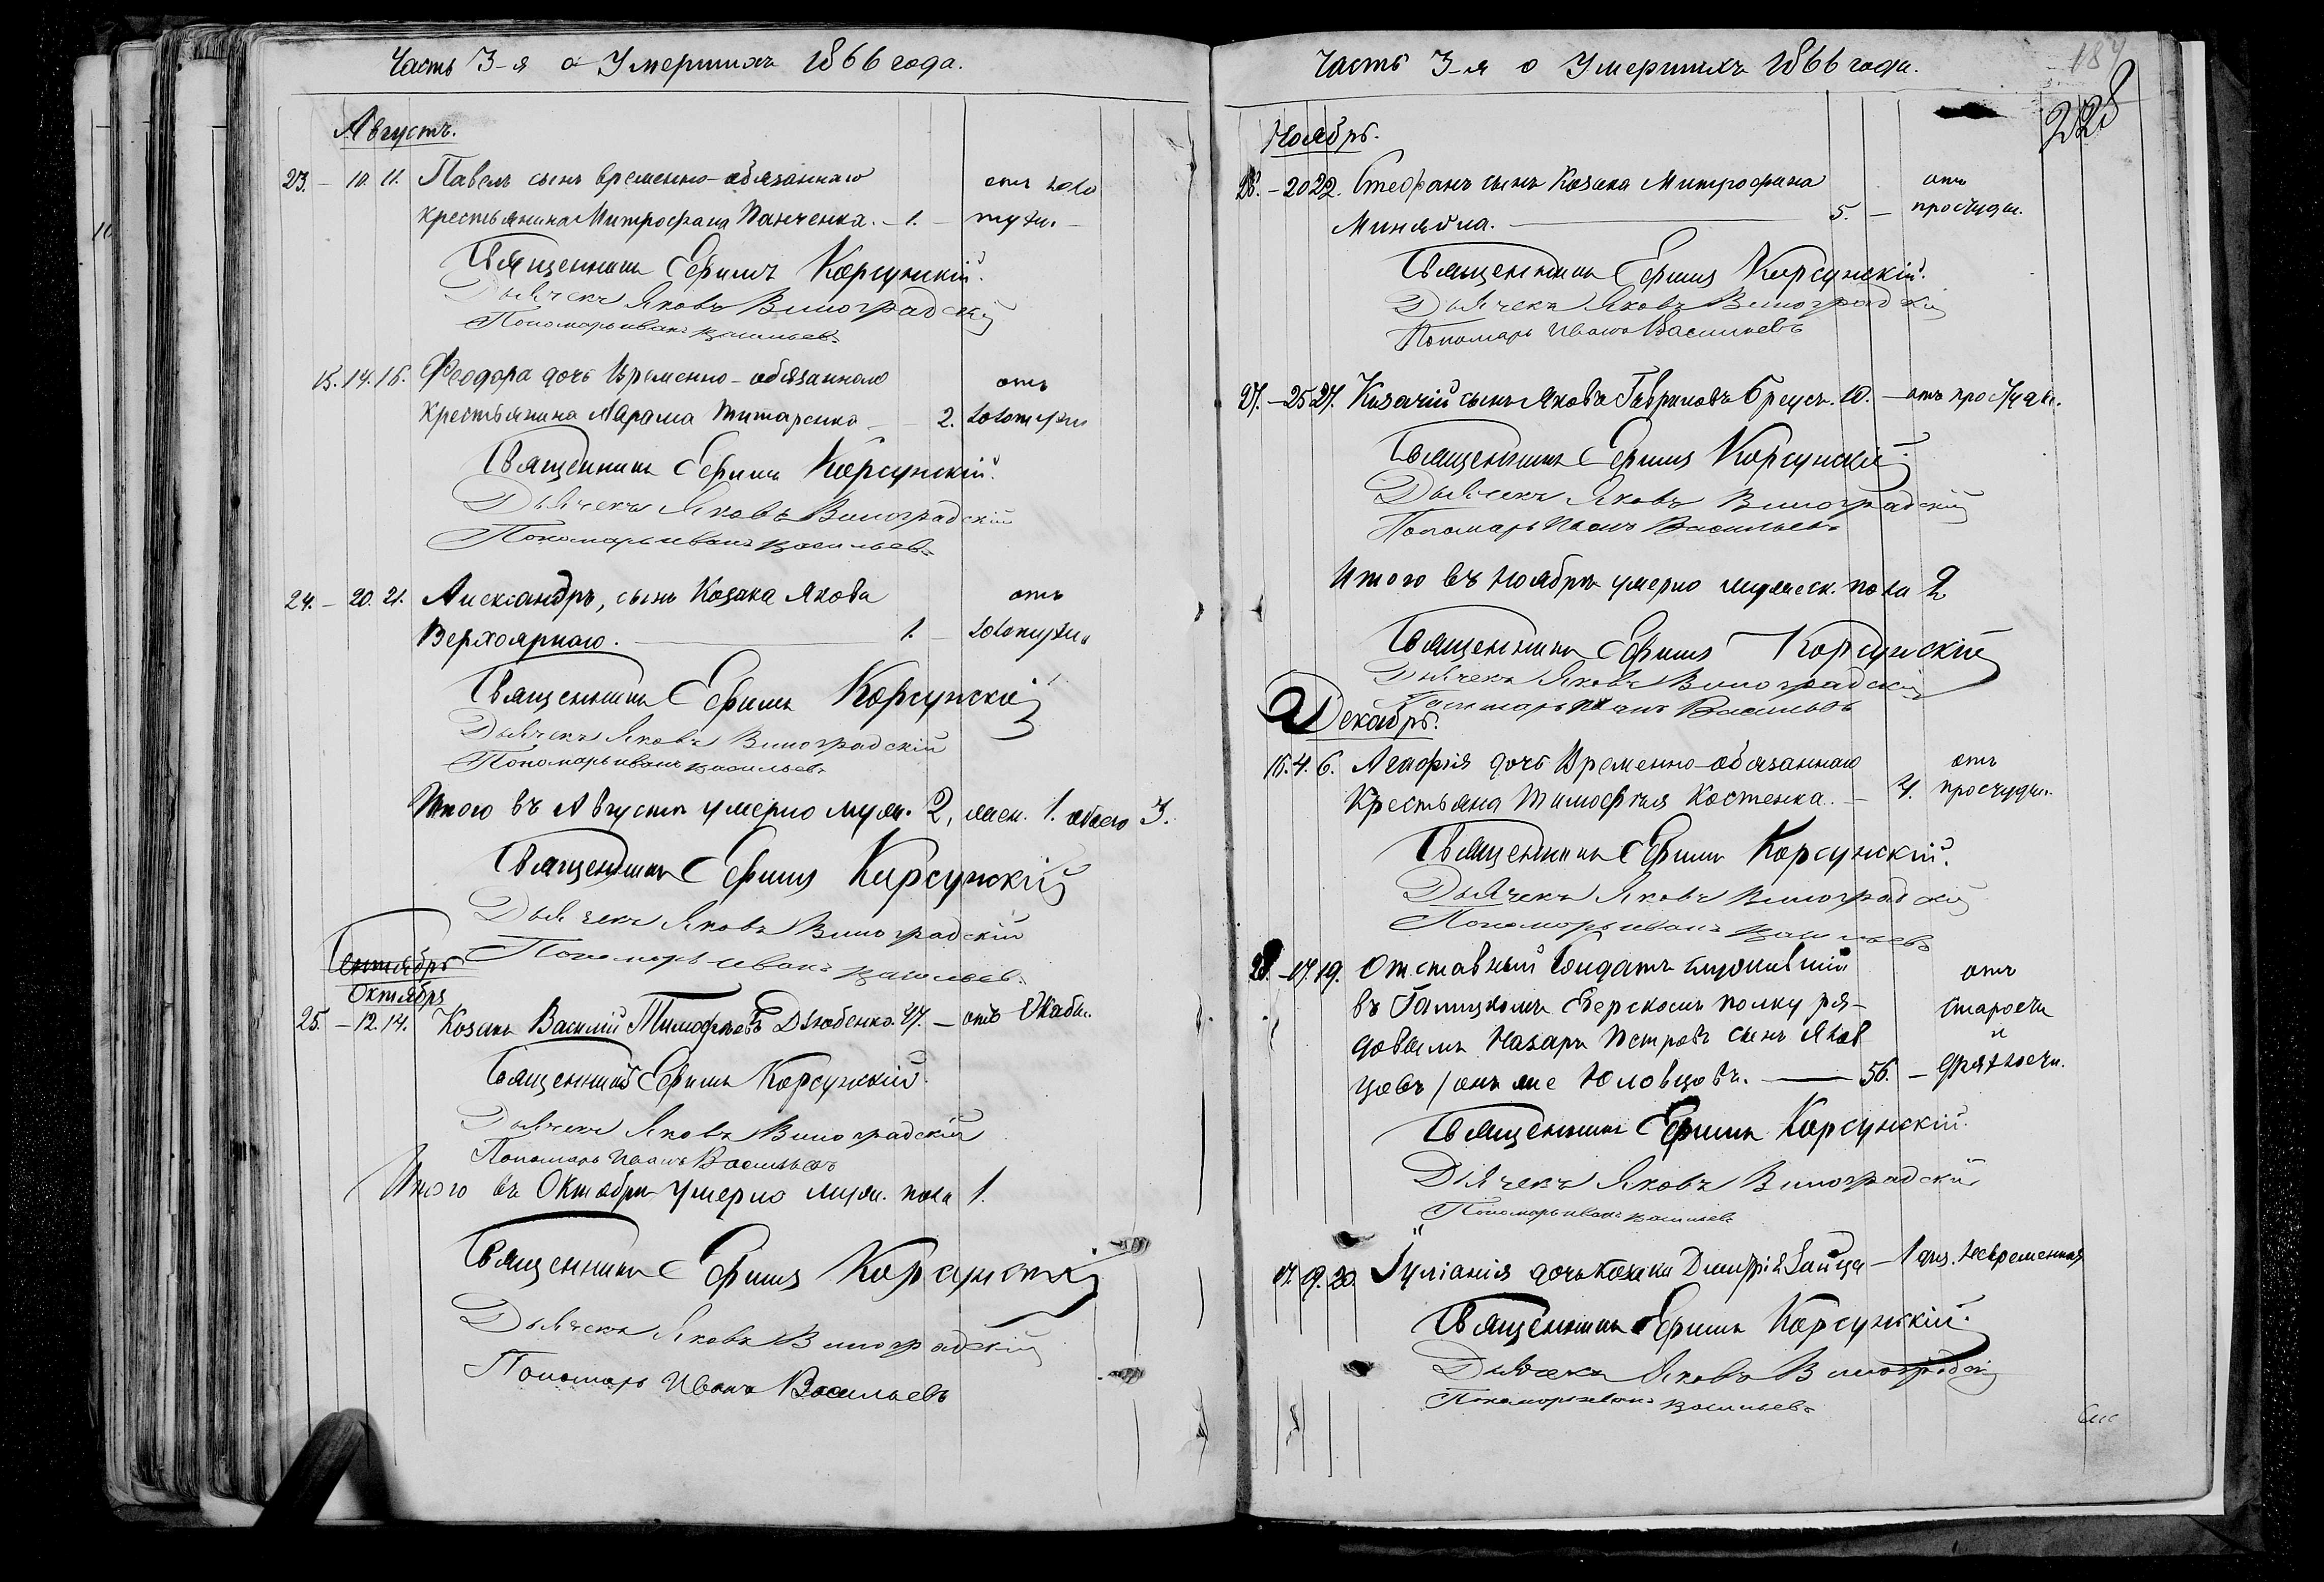 Часть 3-я о Умершихъ 1866 года.
Августъ.
23. – 10. 11. Павелъ сынъ временно-обязаннаго
отъ золо
крестьянина Митрофана Панченка. – 1. –
тухи.
Священникъ Ефимъ Корсунскій.
Дьячекъ Яковъ Виноградскій
Пономарь Иванъ Васильевъ
15. 14. 16. Феодора дочь Временно-обязаннаго
отъ
Крестьянина Титаренка – 2. золотухи
Священникъ Ефимъ Корсунскій.
Дьячекъ Яковъ Виноградскій
Пономарь Иванъ Васильевъ
24. – 20. 21. Александръ, сынъ Козака Якова
отъ
Верхоярнаго. 1. – золотухи
Священникъ Ефимъ Корсунскій
Дьячекъ Яковъ Виноградскій
Пономарь Иванъ Васильевъ
Итого въ Августѣ умерло муж. 2, жен. 1. обоего 3.
Священникъ Ефимъ Корсунскій
Дьячекъ Яковъ Виноградскій
Пономарь Иванъ Васильевъ
Сентябрь
Октябрь
25. – 12. 14. Козакъ Василій Тимофѣевъ Дзюбенко. 47. – отъ
Священникъ Ефимъ Корсунскій.
Дьячекъ Яковъ Виноградскій
Пономарь Иванъ Васильевъ
Итого въ Октябрѣ умерло муж. пола 1.
Священникъ Ефимъ Корсунскій
Дьячекъ Яковъ Виноградскій
Пономарь Иванъ Васильевъ
Часть 3-я о Умершихъ 1866 года.
187
228
Ноябрь.
26. – 20 22. Стефанъ сынъ Козака Митрофана
отъ
Миняйла. 5. – простуды.
Священникъ Ефимъ Корсунскій.
Дьячекъ Яковъ Виноградскій
Пономарь Иванъ Васильевъ
27. – 25 27. Козачій сынъ Яковъ Гавриловъ Бреусъ. 10. – отъ простуды.
Священникъ Ефимъ Корсунскій
Дьячекъ Яковъ Виноградскій
Пономарь Иванъ Васильевъ
Итого въ Ноябрѣ умерло мужеск. пола 2
Священникъ Ефимъ Корсунскій
Дьячекъ Яковъ Виноградскій
Пономарь Иванъ Васильевъ
Декабрь.
16. 4. 6. Агафія дочь Временно-обязаннаго
отъ
Крестьяна Тимофѣя Костенка. – 4. простуды.
Священникъ Ефимъ Корсунскій.
Дьячекъ Яковъ Виноградскій
Пономарь Иванъ Васильевъ
28. – 17 19. Отставный Солдатъ служившій
отъ
въ Галицкомъ Егерскомъ полку ря-
старости
и
довымъ Назаръ Петровъ сынъ Яков
цовъ / онъ же Юловцовъ. 56. – дряхлости.
Священникъ Ефимъ Корсунскій.
Дьячекъ Яковъ Виноградскій
Пономарь Иванъ Васильевъ
17. 19. 20. Іуліанія дочь козака Димитрія Зайца – 1 дня. невременная
Священникъ Ефимъ Корсунскій.
Дьячекъ Яковъ Виноградскій
Пономарь Иванъ Васильевъ